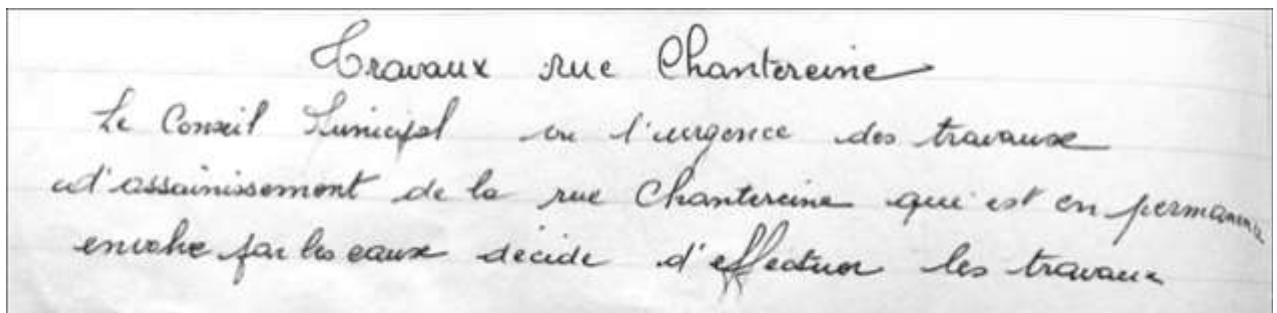 Travaux rue Chantereine
Le Conseil Municipal vu l'urgence des travaux
d'assainissement de la rue Chantereine qui est en permanence
envahie par les eaux décide d'effectuer les travaux